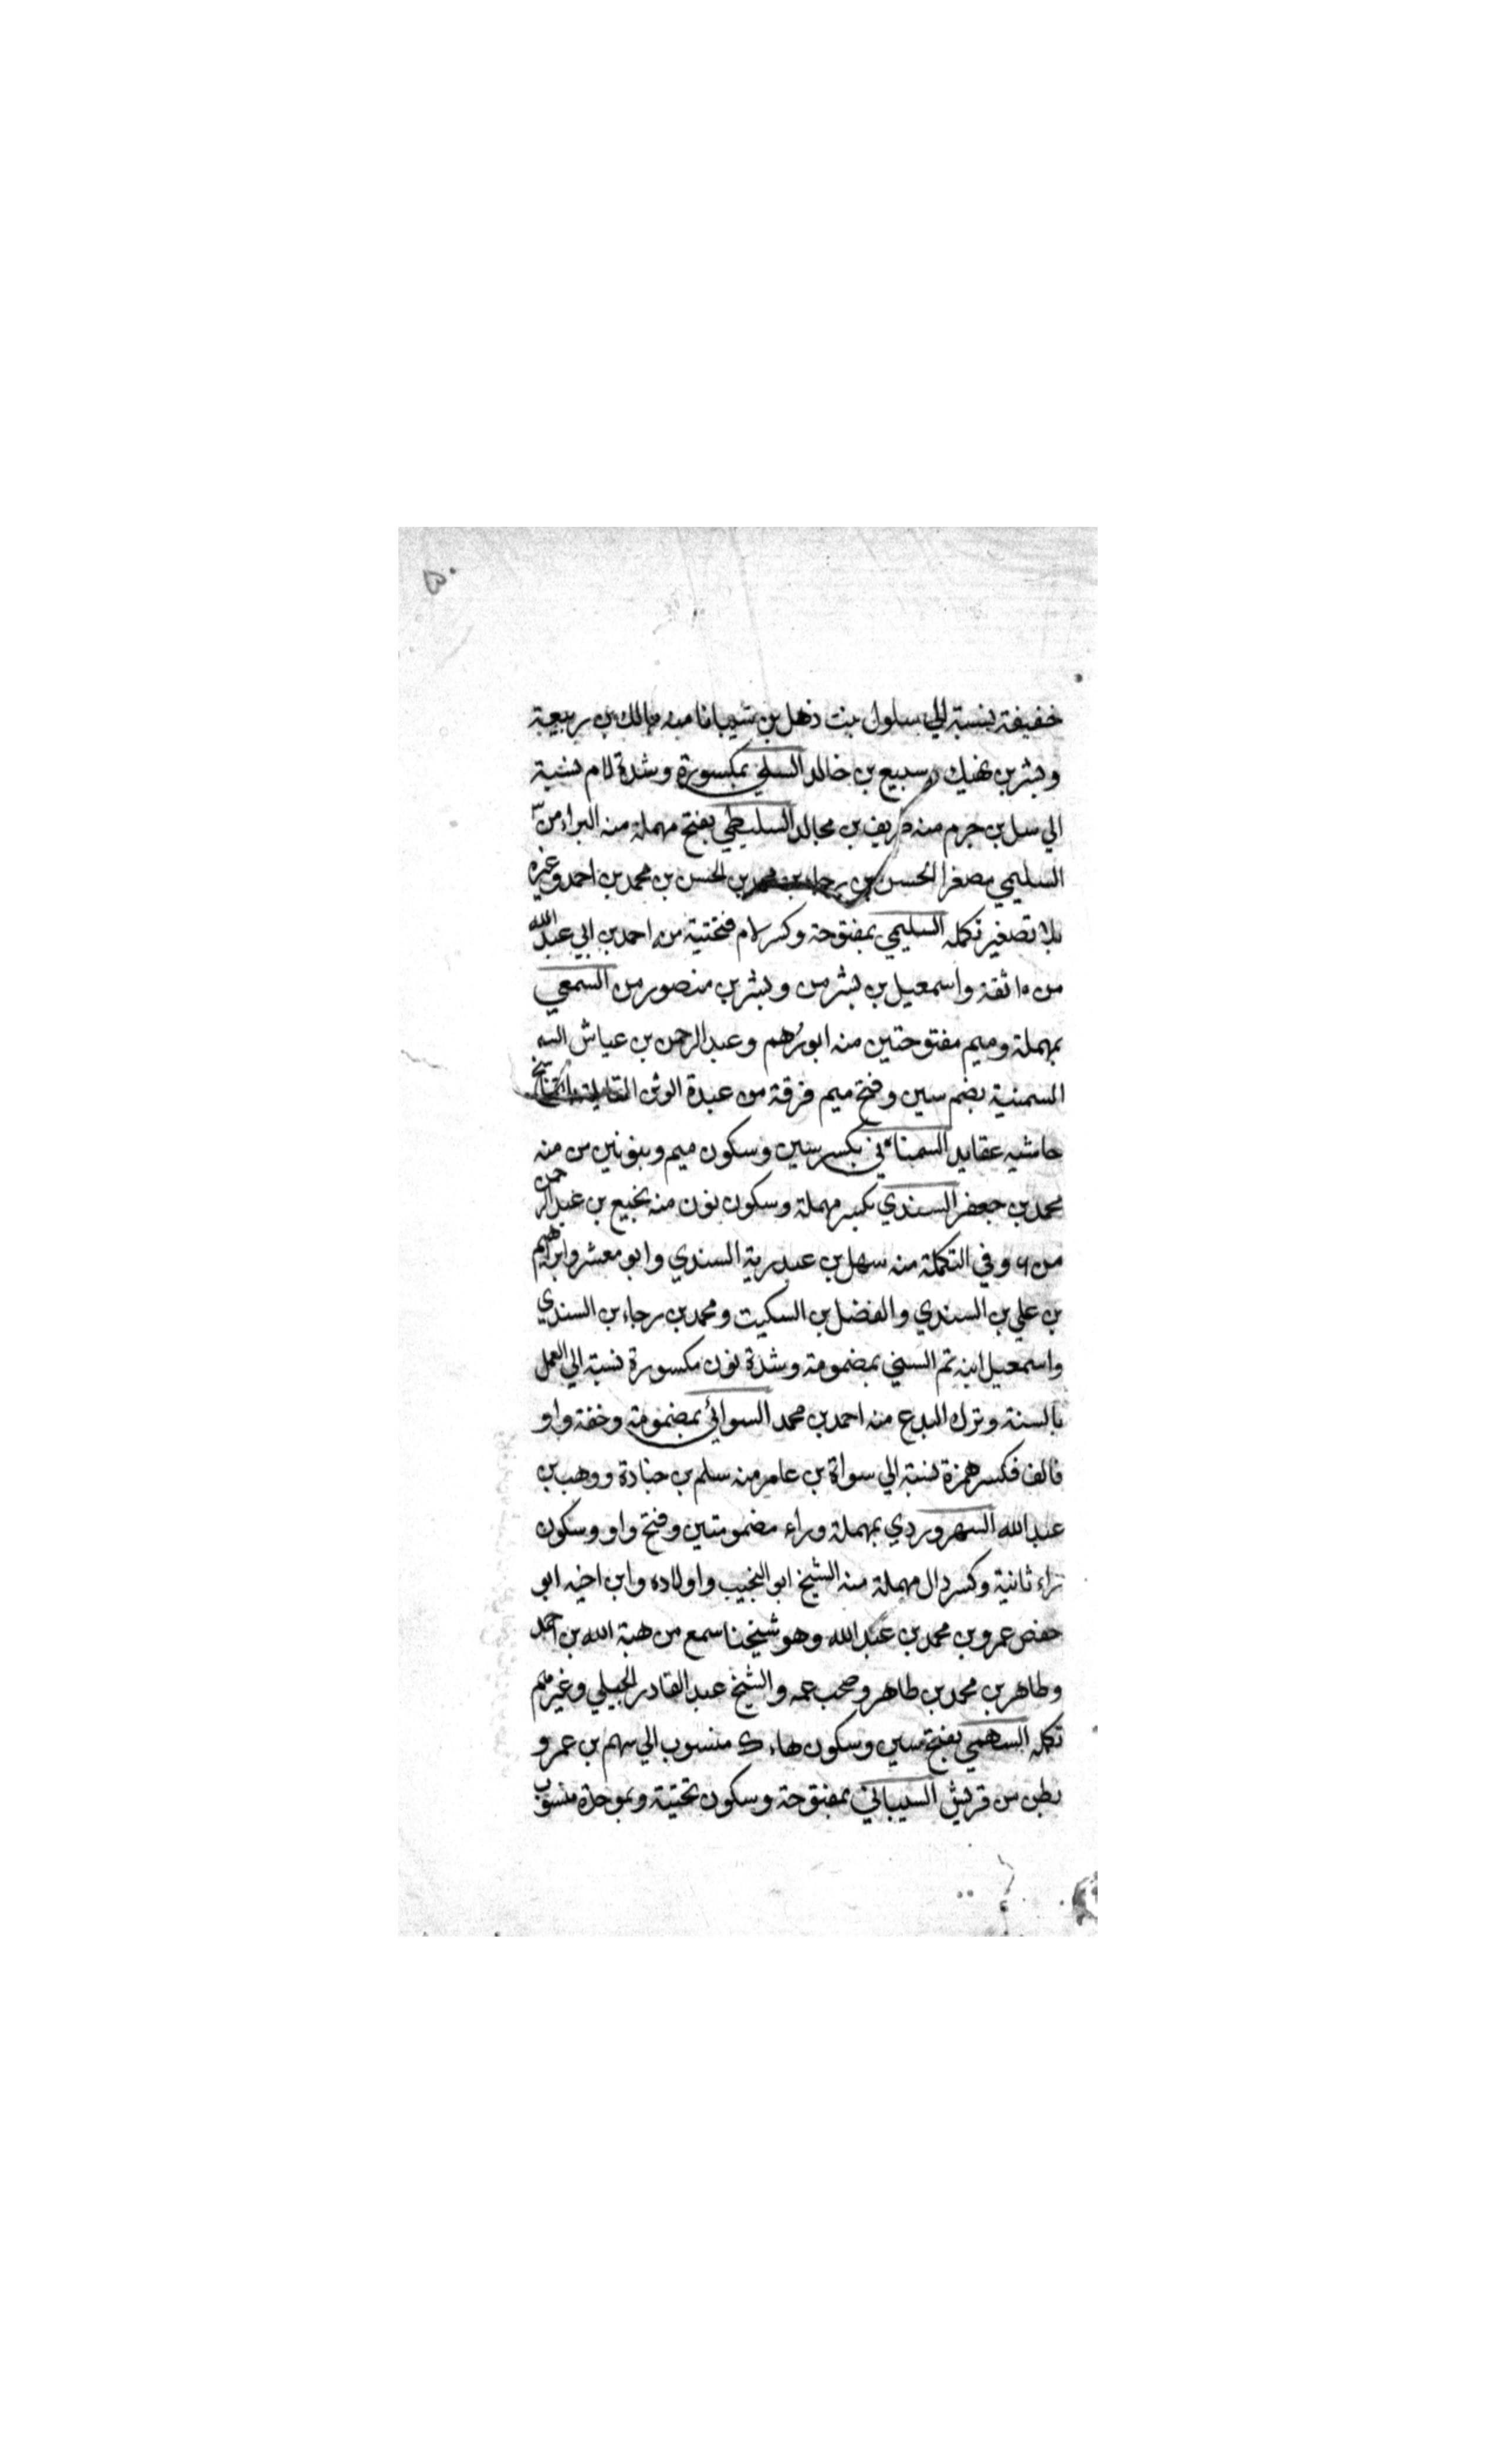 خفيفة بنسبة الي سلول بنت ذهل بن شيبانا منه مالك بن ربيعة
وبشر بن نهيك وسبيع بن خالد السلي بمكسورة وشدة لام نسبة
الي سل بن جرم منه طريف بن مجالد السليطي بفتح مهملة منه البراء من
السليمي مصغرا الحسن بن رجاء بن محمد بن الحسن بن محمد بن احمد وغيره
بلا تصغير تكمله السليمي بمفتوحة وكسر لام فتحتية من احمد بن ابي عبد الله
من ١٥ ثقة واسمعيل بن بشر من وبشر بن منصور من السمعي
بمهملة وميم مفتوحتين منه ابو رُهم وعبد الرحمن بن عياش
السمنية بضم سين وفتح ميم فرقة من عبدة الوثن القايلة بالتناسخ
حاشيه عقايد السمناني بكسر سين وسكون ميم وبنونين من منه
محمد بن جعفر السندي بكسر مهملة وسكون نون منه نجيع بن عبد الرحمن
من ٦ وفي التكملة منه سهل بن عبد ربة السندي وابو معشر وابراهيم
بن علي بن السندي والفضل بن السكيت ومحمد بن رجاء بن السندي
واسمعيل ابنه تم السني بمضمومة وشدة نون مكسورة نسبة الي العمل
بالسنة وترك البدع منه احمد بن محمد السوائي بمضمومة وخفة واو
فالف فكسر همزة نسبة الي سواة بن عامر منه سلم بن جنادة ووهب بن
عبد الله السهروردي بمهملة وراء مضمومتين وفتح واو وسكون
راء ثانية وكسر دال مهملة منه الشيخ ابو النجيب واولاده وابن اخيه ابو
حفص عمرو بن محمد بن عبد الله وهو شيخنا سمع من هبة الله بن احمد
وطاهر بن محمد بن طاهر وصحب عمه والشيخ عبد القادر الجيلي وغيرهم
تكمله السهمي بفتح سين وسكون هاء ك منسوب الي سهم بن عمرو
بطن من قريش السيباني بمفتوحة وسكون تحتية وبموحدة منسوب